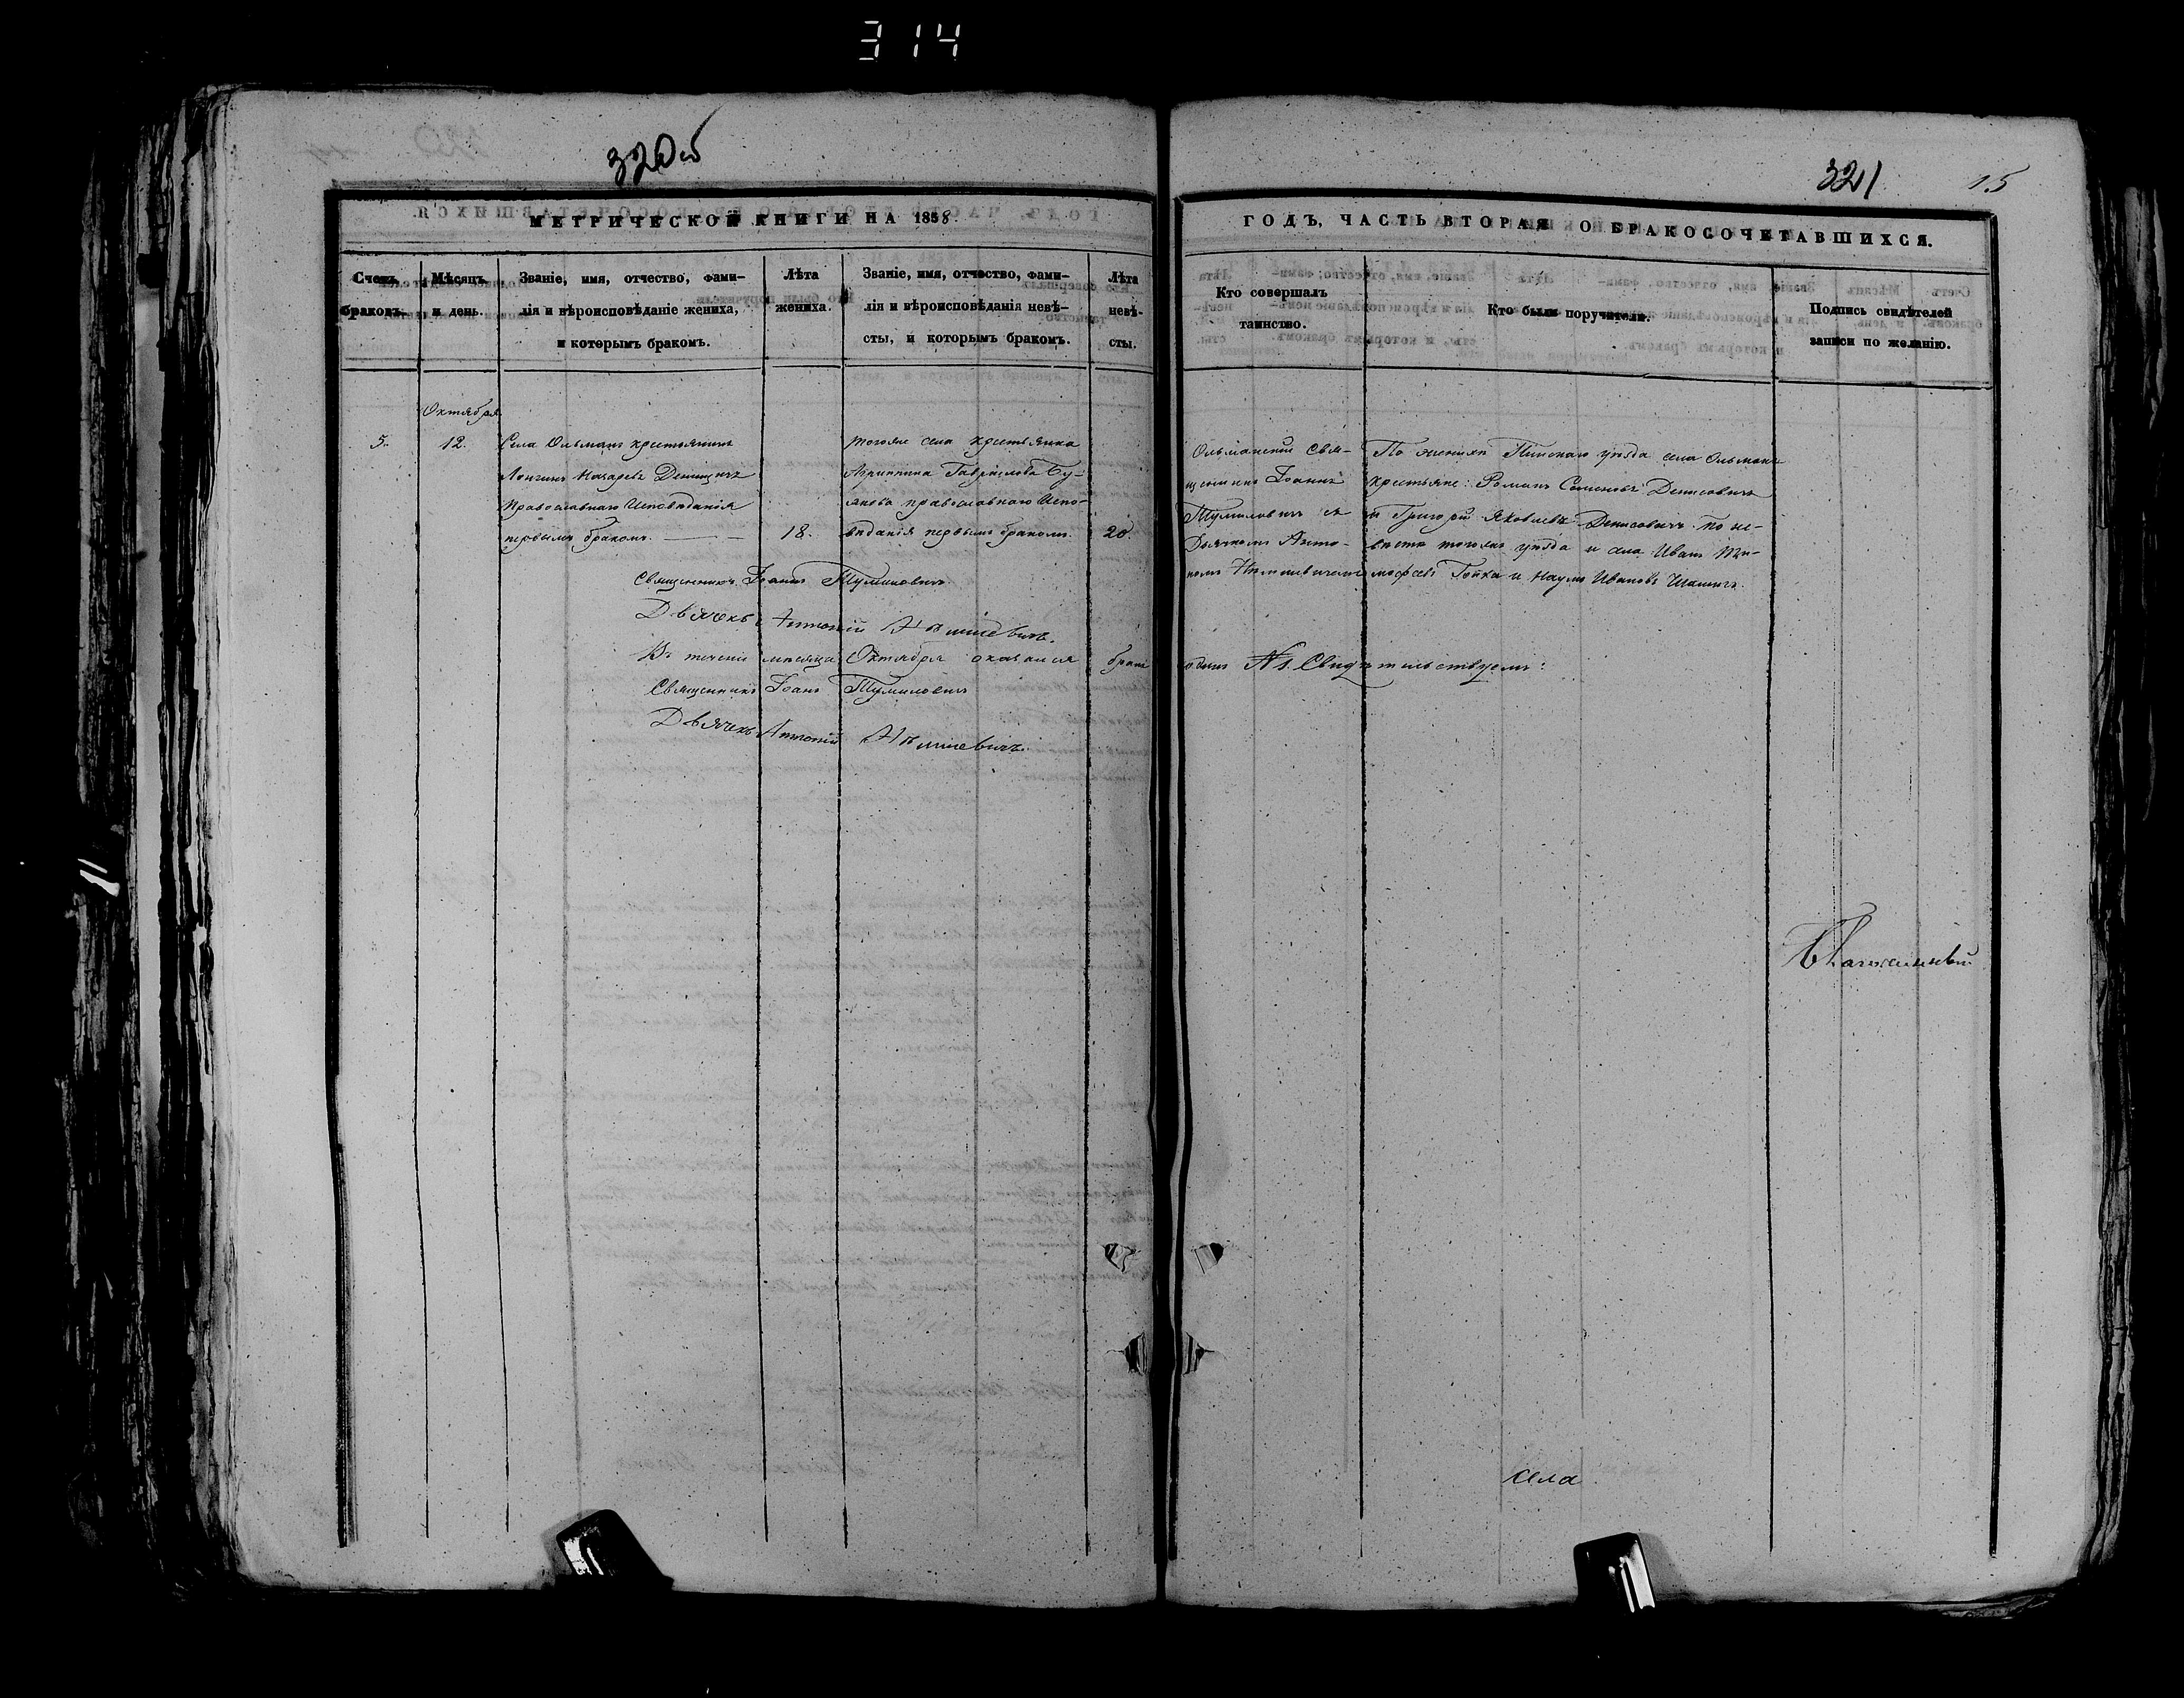 314
320об
МЕТРИЧЕСКОЙ КНИГИ НА 1858.
Счетъ браковъ.
Мѣсяцъ и день.
Званіе, имя, отчество, фами-
лія и вѣроисповѣданіе жениха,
и которымъ бракомъ.
Лѣта
жениха.
Званіе, имя, отчество, фами-
лія и вѣроисповѣданія невѣ-
сты, и которымъ бракомъ.
Лѣта
невѣ-
сты.
Октября
5.
12.
Села Ольманъ крестьянинъ
Лонгинъ Назаревъ
Православнаго Исповѣданія
первымъ бракомъ.
18.
тогоже села крестьянка
Агриппина Гаврілова Бу-
якова православнаго Испо-
вѣданія первымъ бракомъ.
20.
Священникъ Іоаннъ Тумиловичъ
Дьячекъ Антоній
Въ теченіи мѣсяца Октября оказался бракъ
Священникъ Іоанъ Тумиловичъ
Дьячекъ Антоній
321
15
ГОДЪ, ЧАСТЬ ВТОРАЯ О БРАКОСОЧЕТАВШИХСЯ.
Кто совершалъ
таинство.
Кто были поручители.
Подпись свидѣтелей
записи по желанію.
Ольманскій Свя-
щенникъ Іоаннъ
Тумиловичъ съ
Дьячкомъ Анто-
ніемъ
По женихѣ Пинскаго уѣзда села Ольманъ
крестьяне: Романъ Семеновъ Денисовичъ
и Григорій Яковлевъ Денисовичъ по не-
вѣстѣ тогожъ уѣзда и села Иванъ Ти-
мофеевъ и Наумъ Ивановъ
одинъ №1. Свидѣтельствуемъ:
села